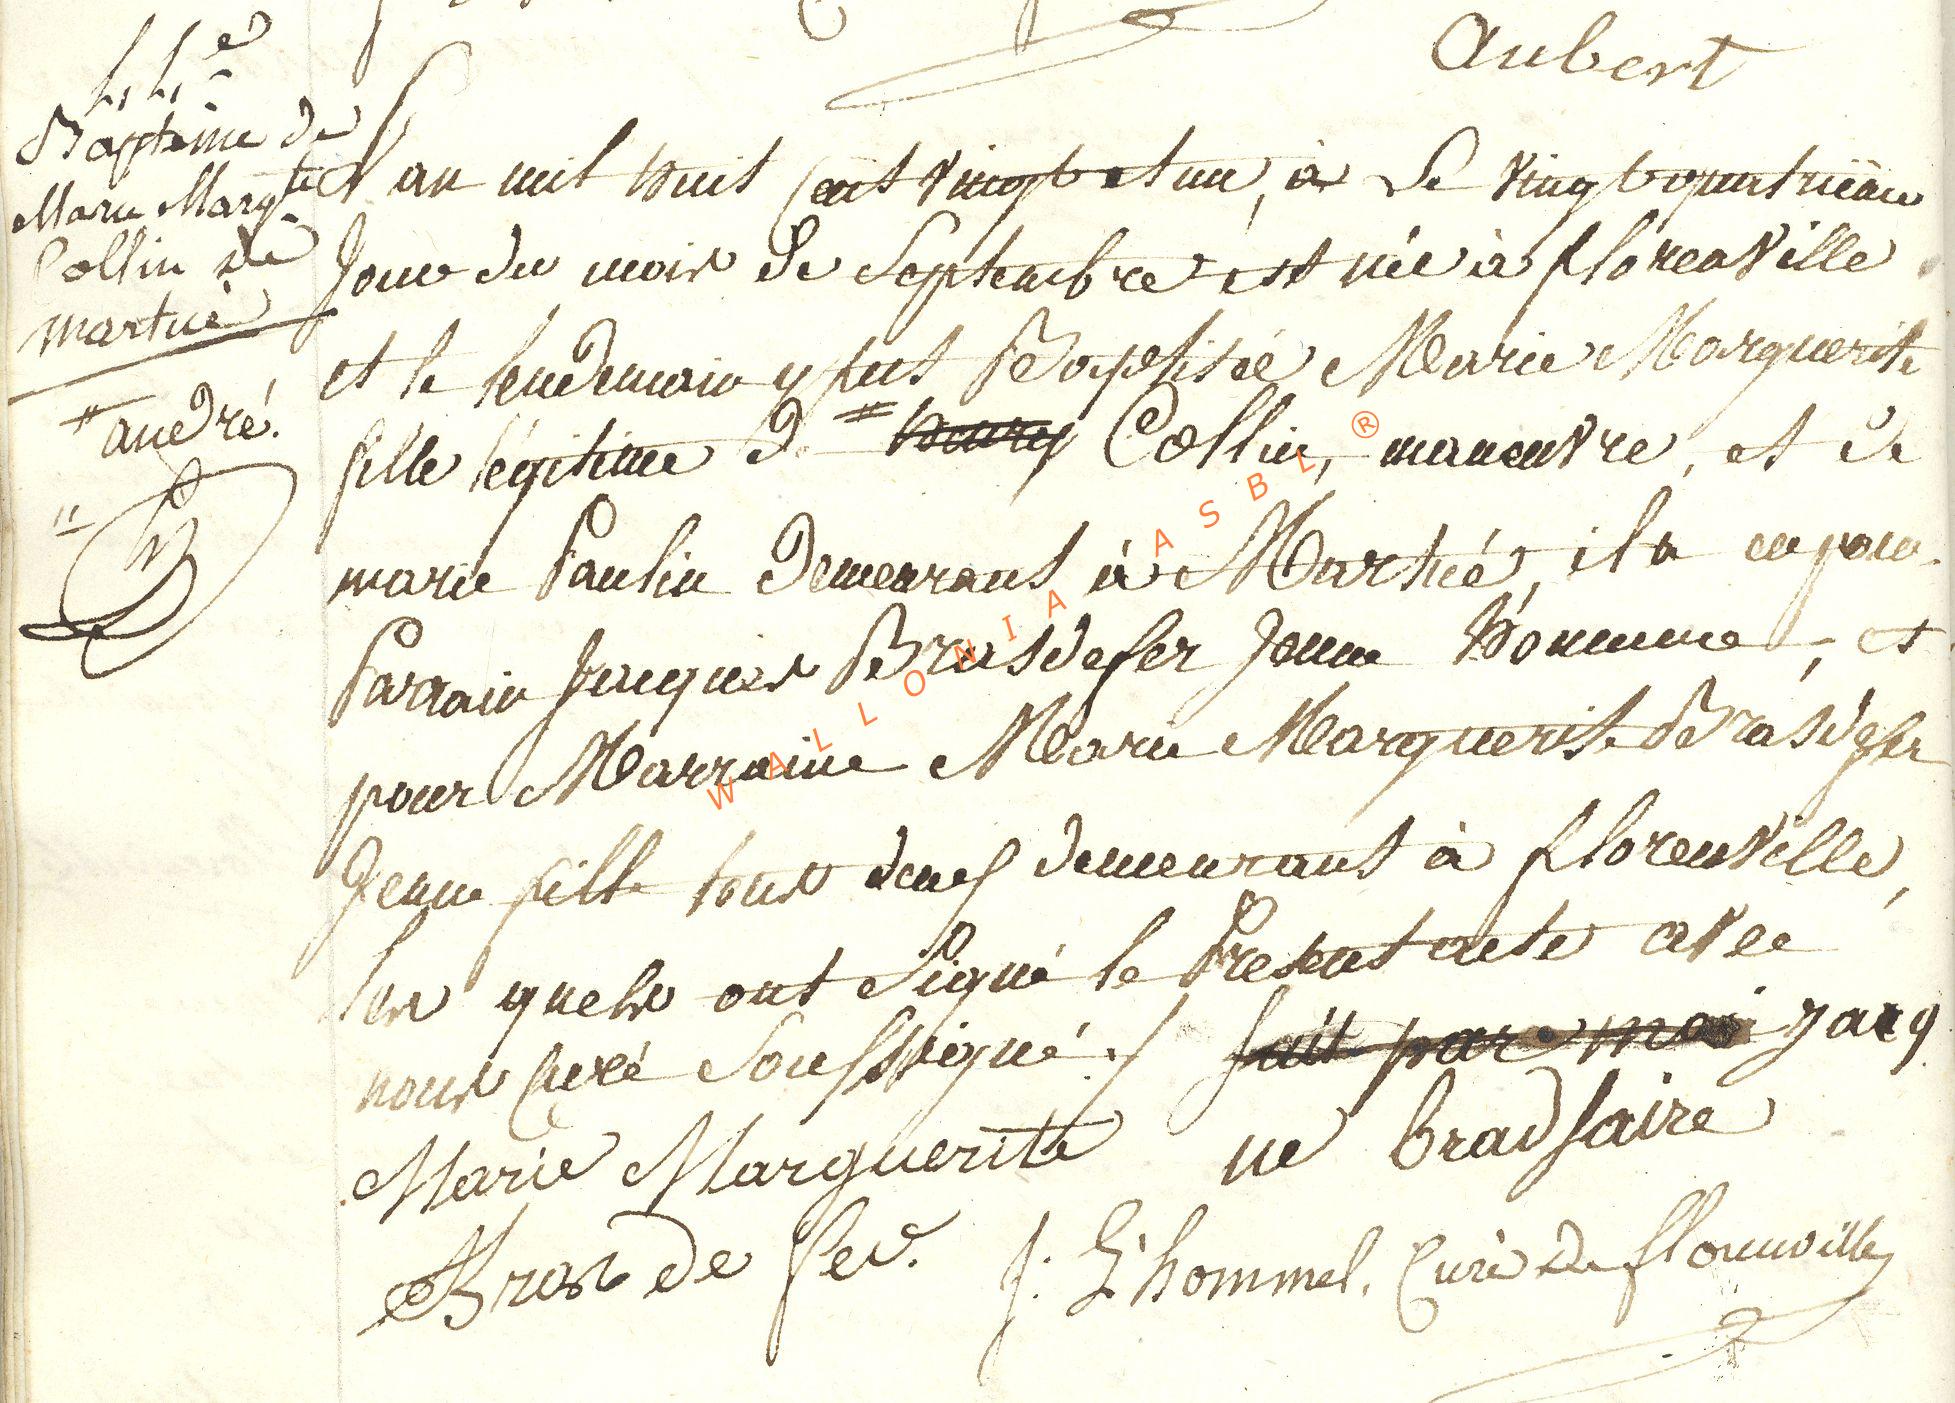 Aubert
Baptême de
Marie Margte
Collin de
martué
" andré.
"
L'an mil huit cent vingt et un, à Le vingt quatrième
Jour du mois de Septembre est née à florenville
et le lendemain y fut Baptisée Marie Marguerite
fille légitime d. " henry Collin, manœuvre, et de
marie Paulin demeurant à Martué, il a eu pour
Parrain Jacques Brasdefer Jeune homme, et
pour Marraine Marie Marguerite Brasdefer
Jeune fille tous deux demeurant à florenville,
les quels ont Signé le Présent acte avec
nous Curé Soussigné ./ fait par moi jacq
Marie Marguerite ue bradfaire
Bras de fer. J: L'hommel, Curé de florenville
WALLONIA ASBL ®